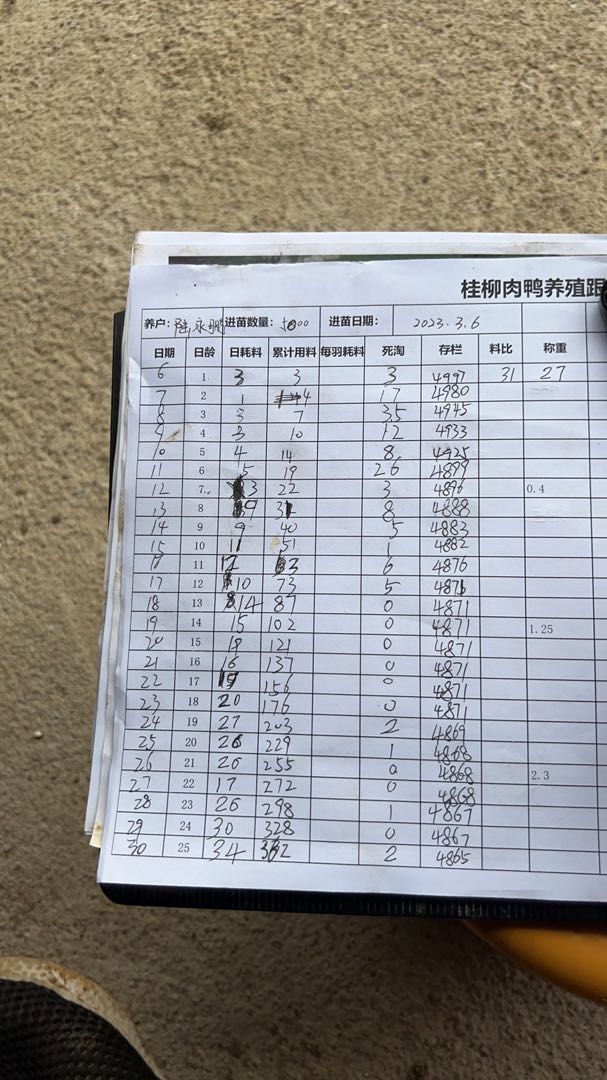 桂柳肉鸭养殖跟
养户: 陆永鹏 进苗数量: 5000 进苗日期: 2023.3.6
日期 日龄 日耗料 累计用料 每羽耗料 死淘 存栏 料比 称重
6 1 3 3 3 4997 31 27
7 2 1 4 17 4980
8 3 3 7 35 4945
9 4 3 10 12 4933
10 5 4 14 8 4925
11 6 5 19 26 4899
12 7 3 22 3 4896 0.4
13 8 9 31 8 4888
14 9 9 40 5 4883
15 10 11 51 1 4882
16 11 12 63 6 4876
17 12 10 73 5 4871
18 13 14 87 0 4871
19 14 15 102 0 4871 1.25
20 15 19 121 0 4871
21 16 16 137 0 4871
22 17 19 156 0 4871
23 18 20 176 0 4871
24 19 27 203 2 4869
25 20 26 229 1 4868
26 21 26 255 0 4868 2.3
27 22 17 272 0 4868
28 23 26 298 1 4867
29 24 30 328 0 4867
30 25 34 362 2 4865